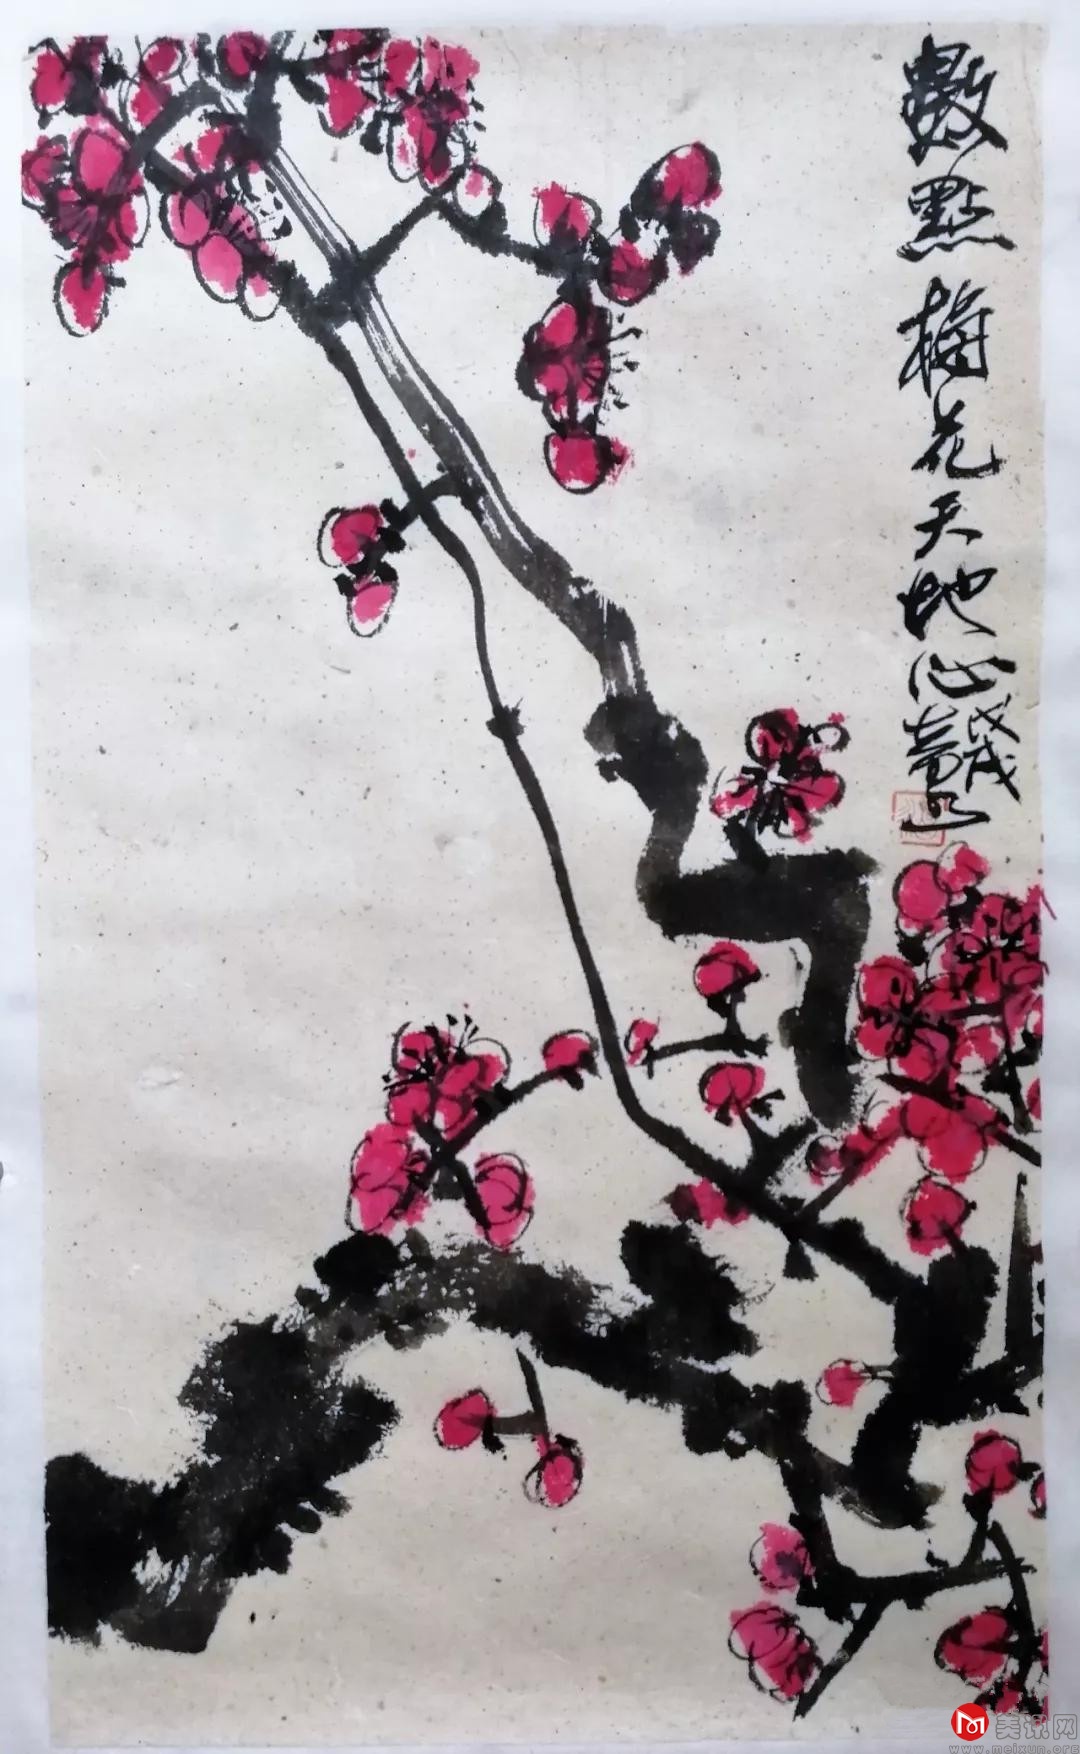 數點梅花天地心
戊戌
美讯网
www.meixun.org